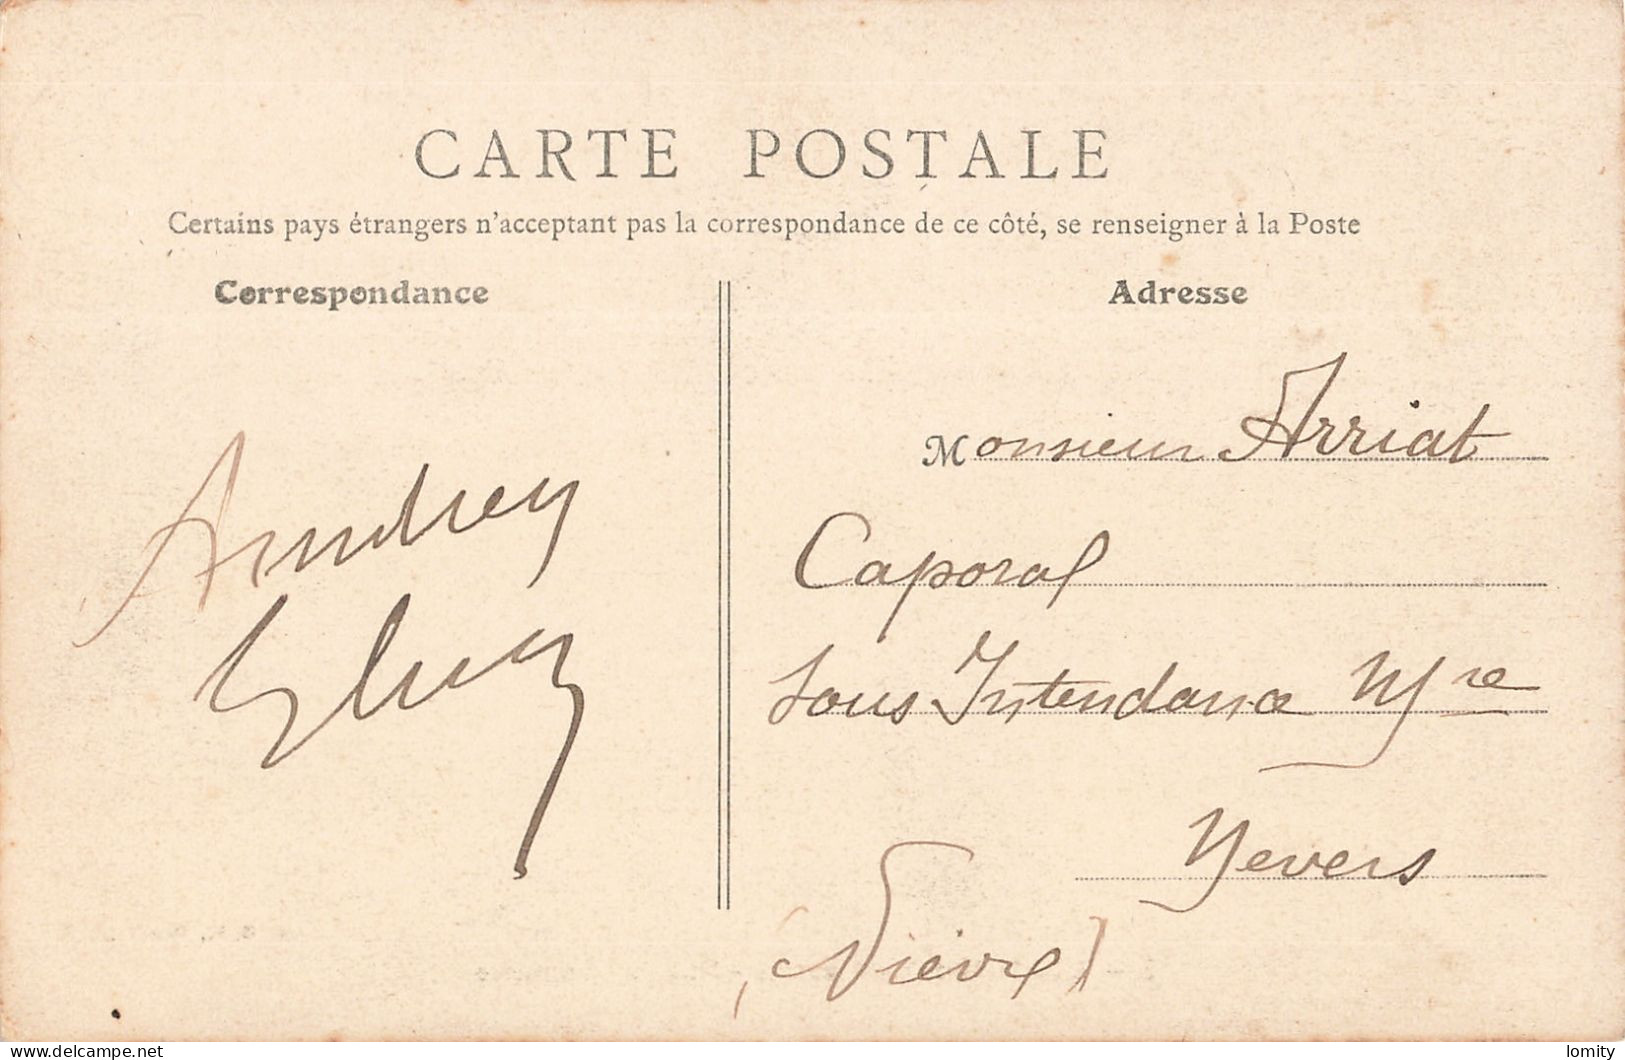 CARTE POSTALE
Certains pays étrangers n'acceptant pas la correspondance de ce côté, se renseigner à la Poste
Correspondance
Adresse
Monsieur Arriat
Caporal
Sous Intendance Mre
Nevers
(Nièvre)
delcampe.net
lomity